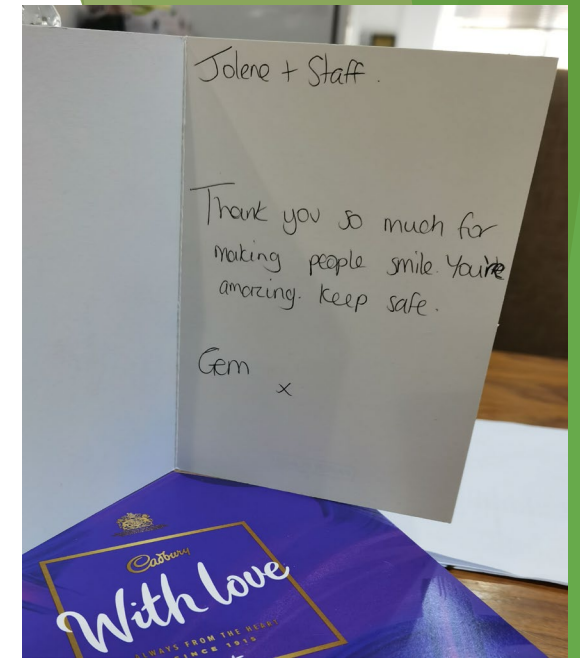 Jolene + Staff.
Thank you so much for
making people smile. You're
amazing. Keep safe.
Gem
x
Cadbury
With love
ALWAYS FROM THE HEART
SINCE 1915